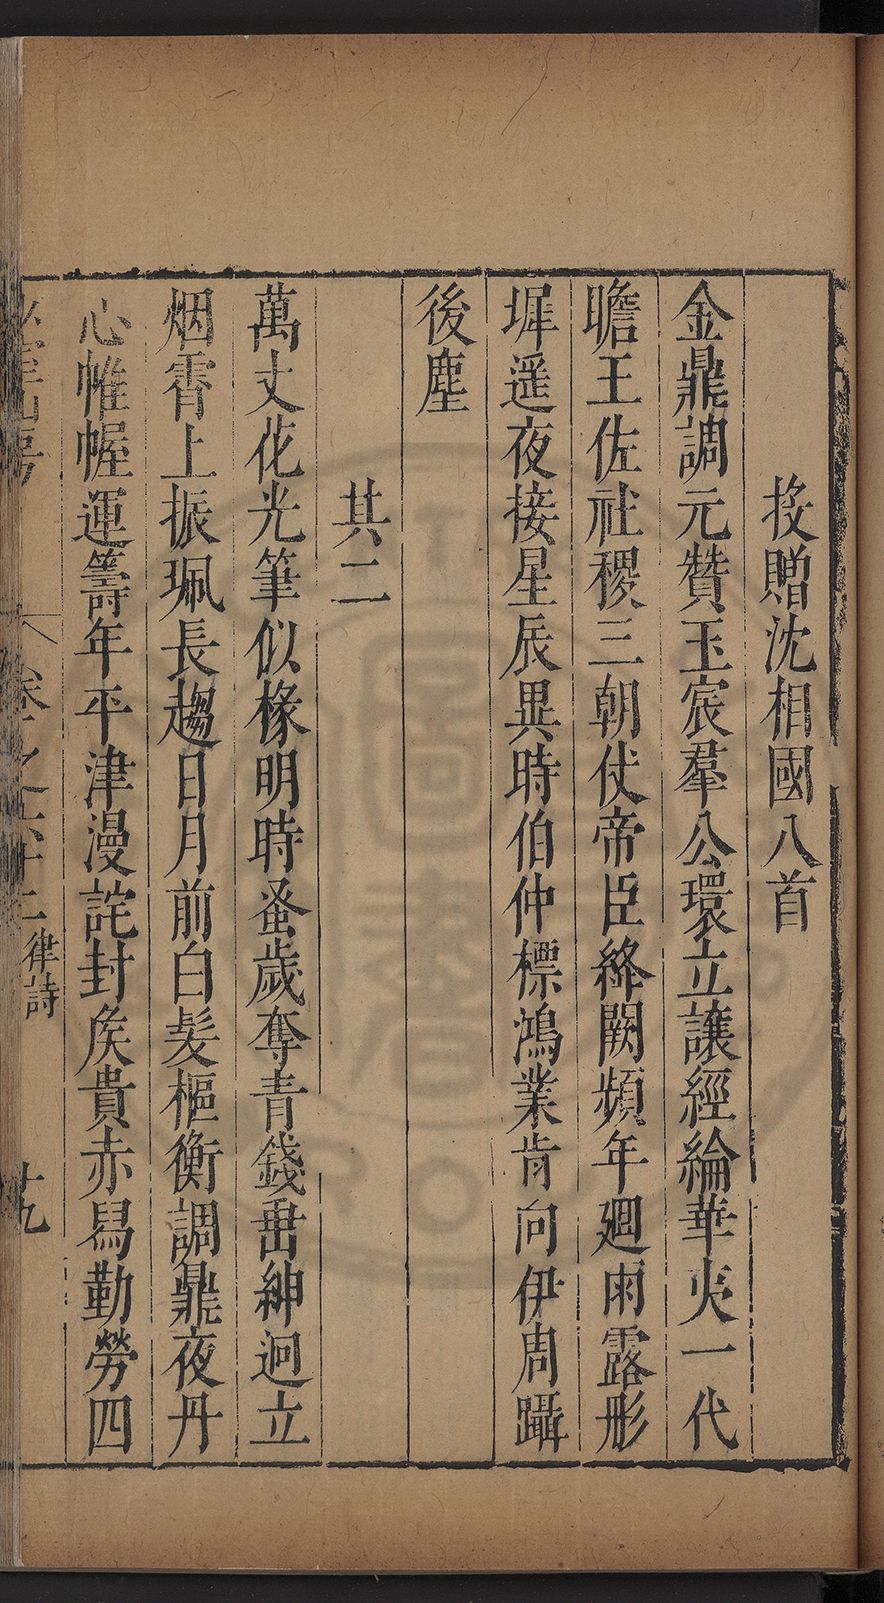 投贈沈相國八首
金鼎調元贊玉宸羣公環立讓經綸華夷一代
瞻王佐社稷三朝仗帝臣絳闕頻年廻雨露形
墀遥夜接星辰異時伯仲標鴻業肯向伊周躡
後塵
其二
萬丈花光筆似椽明時蚤歲奪青錢垂紳迥立
烟霄上振珮長趨日月前白髮樞衡調鼎夜丹
心帷幄運籌年平津漫詫封矦貴赤舄勤勞四
卷之六十二 律詩 十九